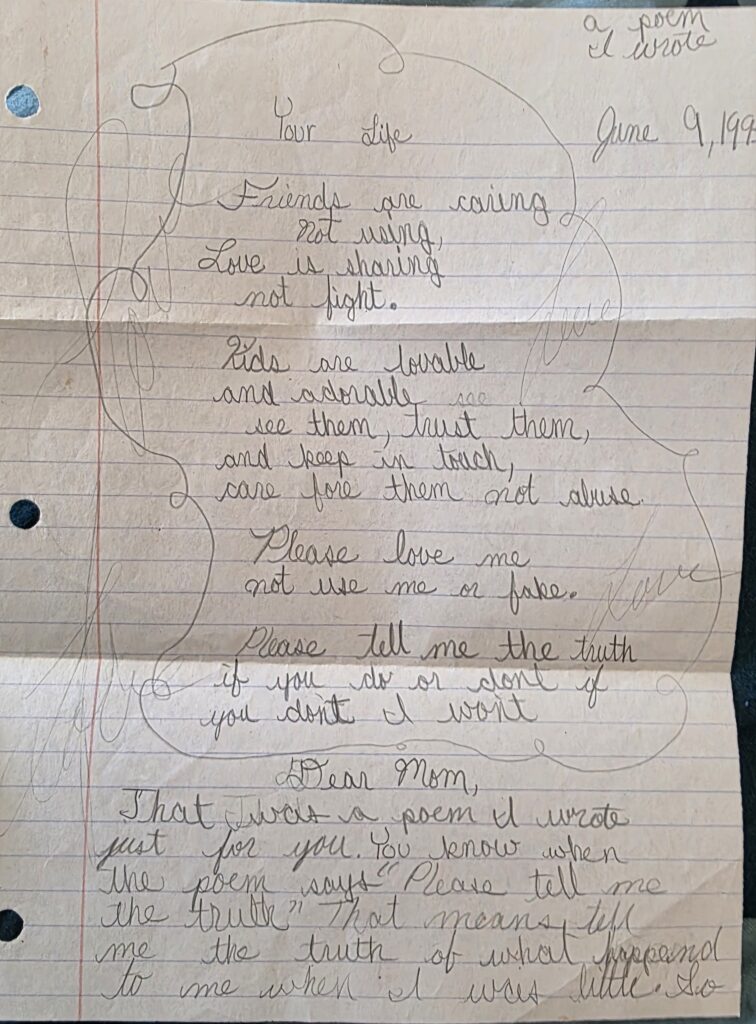 a poem
I wrote
Your Life
June 9, 199
Friends are caring
not using,
Love is sharing
not fight.
Kids are lovable
and adorable see
see them, trust them,
and keep in touch,
care fore them not abuse.
Please love me
not use me or fake.
Please tell me the truth
if you do or dont if
you dont I wont
love
love
Dear Mom,
That was a poem I wrote
just for you. You know when
the poem says "Please tell me
the truth" That means, tell
me the truth of what happend
to me when I was little. So